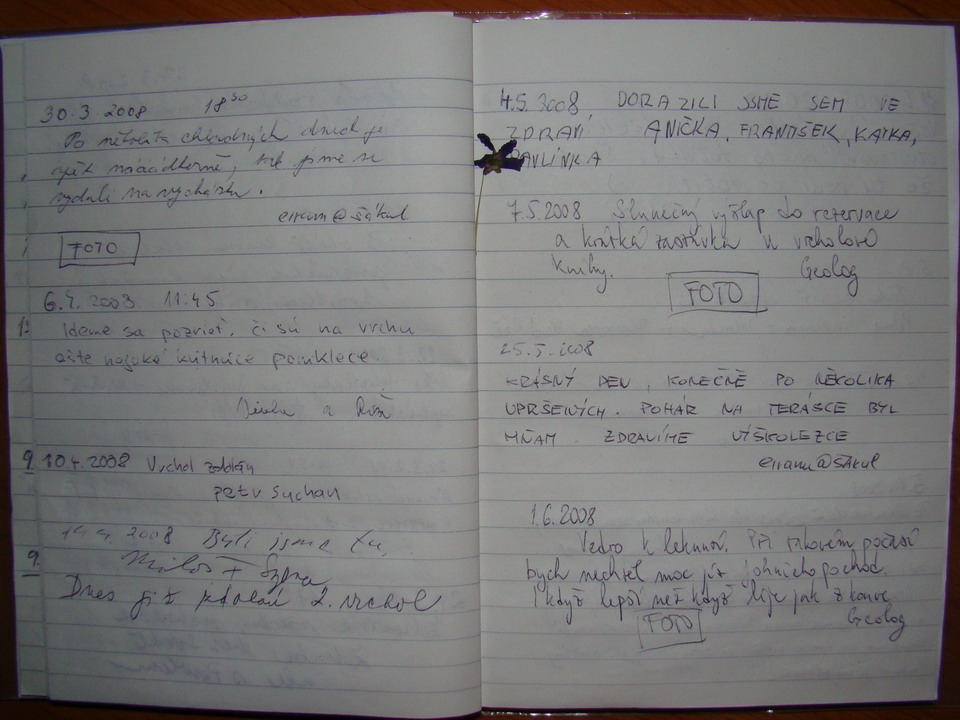 30.3 2008 18 30
Po několika chladných dnech je
opět nádherně, tak jsme se
vydali na vycházku.
eiram@šákul
FOTO
6.4. 2008 11:45
Ideme sa pozrieť, či sú na vrchu
ešte nejaké kvitnúce poniklece.
a
10.4.2008 Vrchol zdolán
petr suchan
14.4. 2008 Byli jsme tu,
Miloš +
Dnes již zdolán 2. vrchol
4.5. 2008 DORAZILI JSME SEM VE
ZDRAVÍ, ANIČKA, FRANTIŠEK, KATKA,
PAVLÍNKA
7.5.2008 Slunečný výšlap do rezervace
a krátká zastávka u vrcholové
knihy. Geolog
FOTO
25.5.2008
KRÁSNÝ DEN, KONEČNĚ PO NĚKOLIKA
UPRŠENÝCH. POHÁR NA TERÁSCE BYL
MŇAM. ZDRAVÍME VÝŠKOLEZCE
eiram@šákul
1.6.2008
Vedro k leknutí. Při takovém počasí
bych nechtěl moc jít pochod.
I když lepší než když lije jak z konve.
Geolog
FOTO